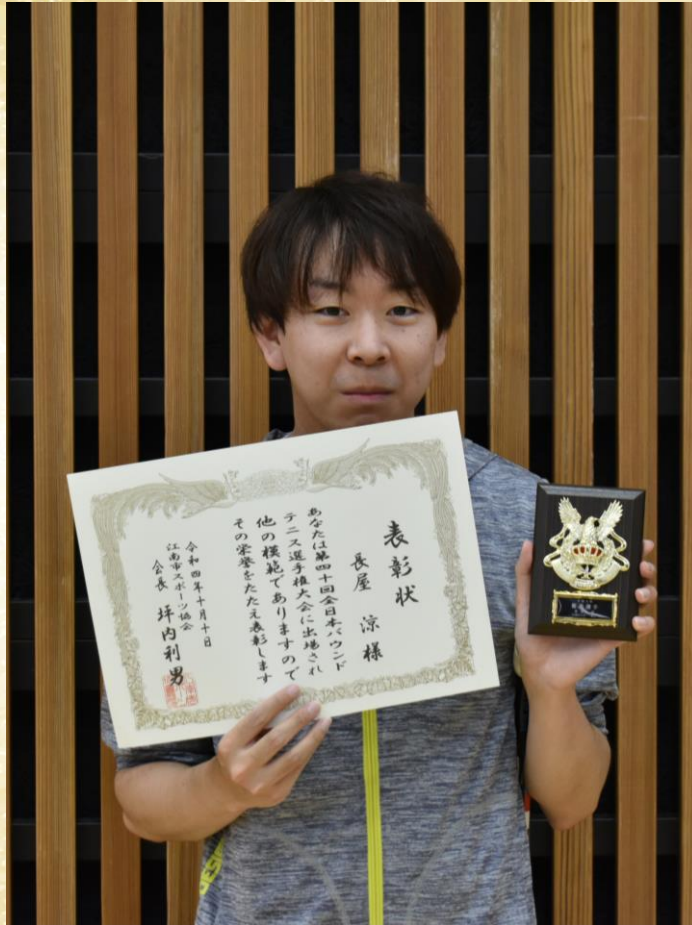 表彰状
長屋 涼 様
あなたは第四十回全日本バウンド
テニス選手権大会に出場され
他の模範でありますので
その栄誉をたたえ表彰します
令和四年十月十日
江南市スポーツ協会
会長 坪内利男